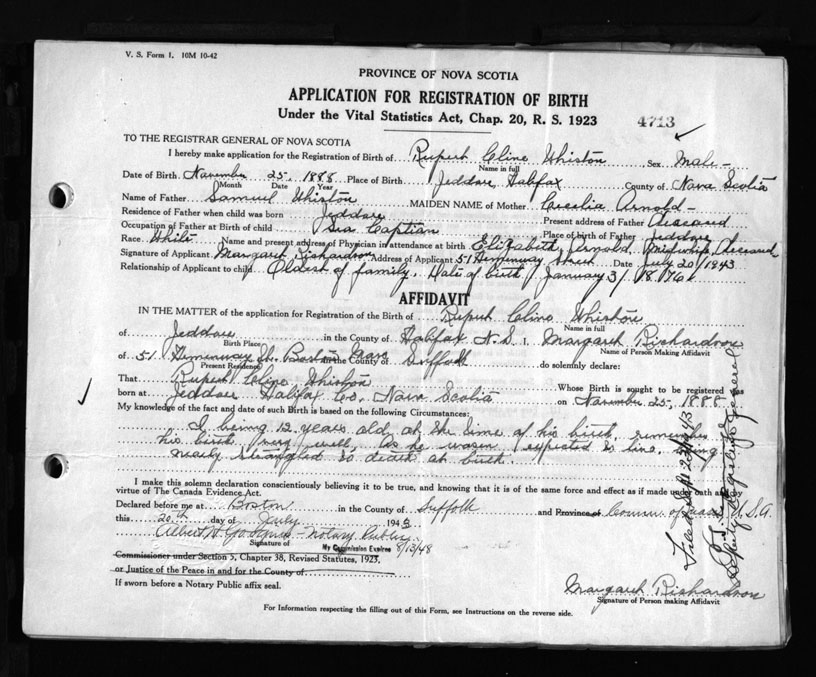 V. S. Form 1. 10M 10-42
PROVINCE OF NOVA SCOTIA
APPLICATION FOR REGISTRATION OF BIRTH
Under the Vital Statistics Act, Chap. 20, R. S. 1923
4713
TO THE REGISTRAR GENERAL OF NOVA SCOTIA
I hereby make application for the Registration of Birth of Rupert Cline Whiston Sex Male -
Name in full
Date of Birth November 25, 1888 Place of Birth Jeddore Halifax County of Nova Scotia
Month Date Year
Name of Father Samuel Whiston MAIDEN NAME of Mother Cecelia Arnold -
Residence of Father when child was born Jeddore Present address of Father deceased
Occupation of Father at Birth of child Sea Captian Place of birth of Father Jeddore
Race White Name and present address of Physician in attendance at birth Elizabeth Arnold, Midwife, Deceased
Signature of Applicant Margaret Richardson Address of Applicant 51 Hemenway Street Date July 20/1943
Relationship of Applicant to child Oldest of family. Date of birth January 3/1876
AFFIDAVIT
IN THE MATTER of the application for Registration of the Birth of Rupert Cline Whiston
Name in full
of Jeddore in the County of Halifax N.S. I, Margaret Richardson
Birth Place Name of Person Making Affidavit
of 51 Hemenway St. Boston Mass in the County of Suffolk do solemnly declare:
Present Residence
That Rupert Cline Whiston Whose Birth is sought to be registered was
born at Jeddore Halifax Co. Nova Scotia on November 25, 1888
My knowledge of the fact and date of such Birth is based on the following Circumstances:
I being 12 years old at the time of his birth, remember
his birth very well, as he wasn't expected to live, being
nearly strangled to death at birth.
I make this solemn declaration conscientiously believing it to be true, and knowing that it is of the same force and effect as if made under oath and by
virtue of The Canada Evidence Act.
Declared before me at Boston in the County of Suffolk and Province of Comm. of Mass U.S.A.
this 20th day of July 1943
Albert H. Notary Public
Signature of My Commission Expires 8/13/48
Commissioner under Section 5, Chapter 38, Revised Statutes, 1923.
or Justice of the Peace in and for the County of
If sworn before a Notary Public affix seal.
Margaret Richardson
Signature of Person making Affidavit
For Information respecting the filling out of this Form, see Instructions on the reverse side.
Filed Sept 23rd 1943
Deputy Registrar General